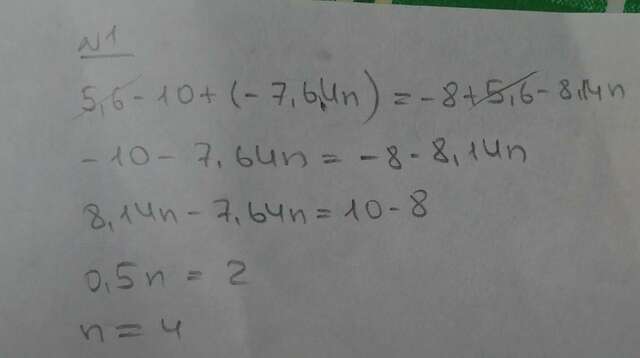 №1
5,6 - 10 + (-7,64n) = -8 + 5,6 - 8,14n
-10 - 7,64n = -8 - 8,14n
8,14n - 7,64n = 10 - 8
0,5n = 2
n = 4